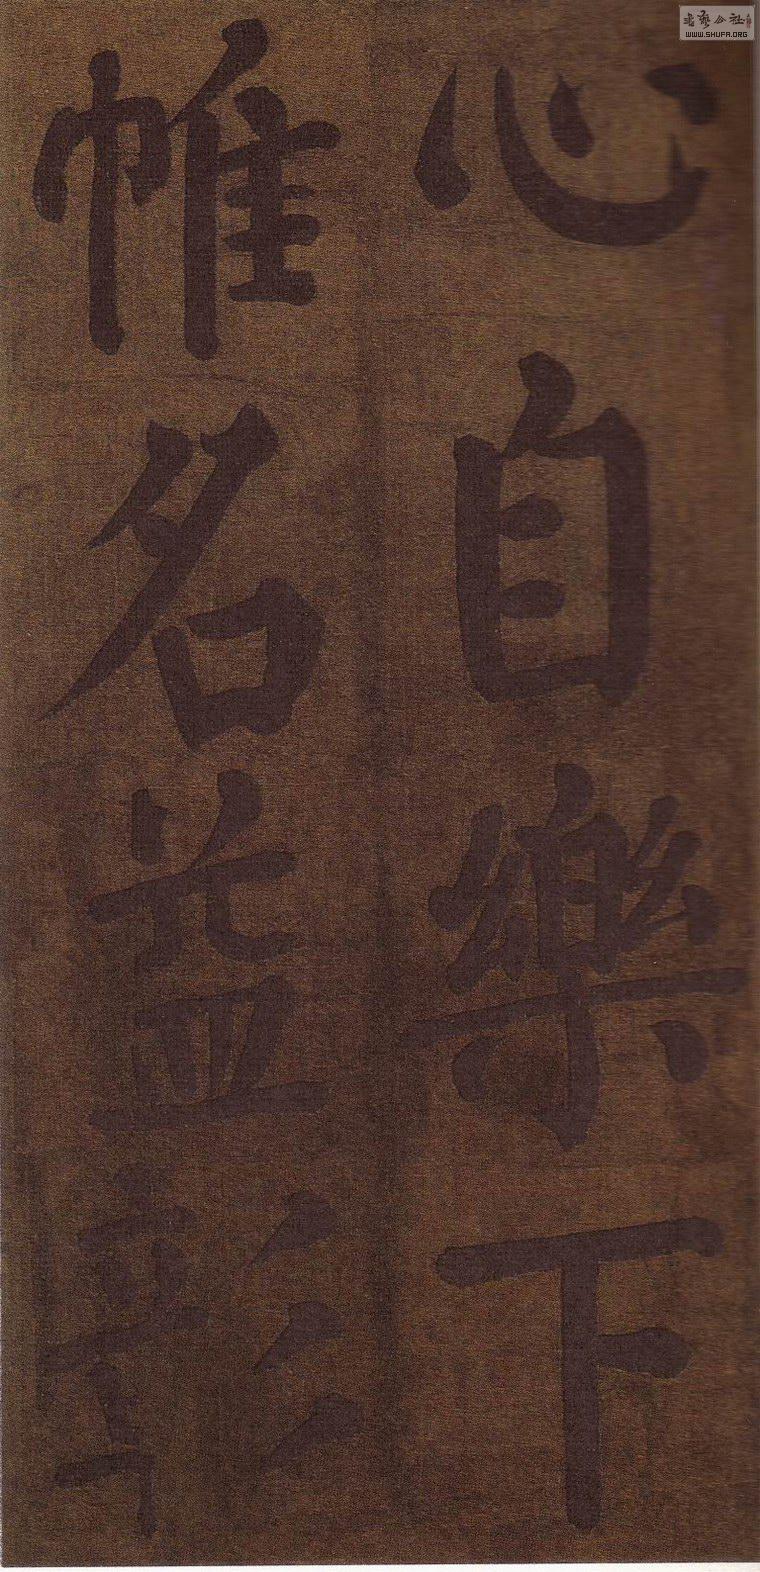 心自樂下
帷名益彰
書藝公社
WWW.SHUFA.ORG